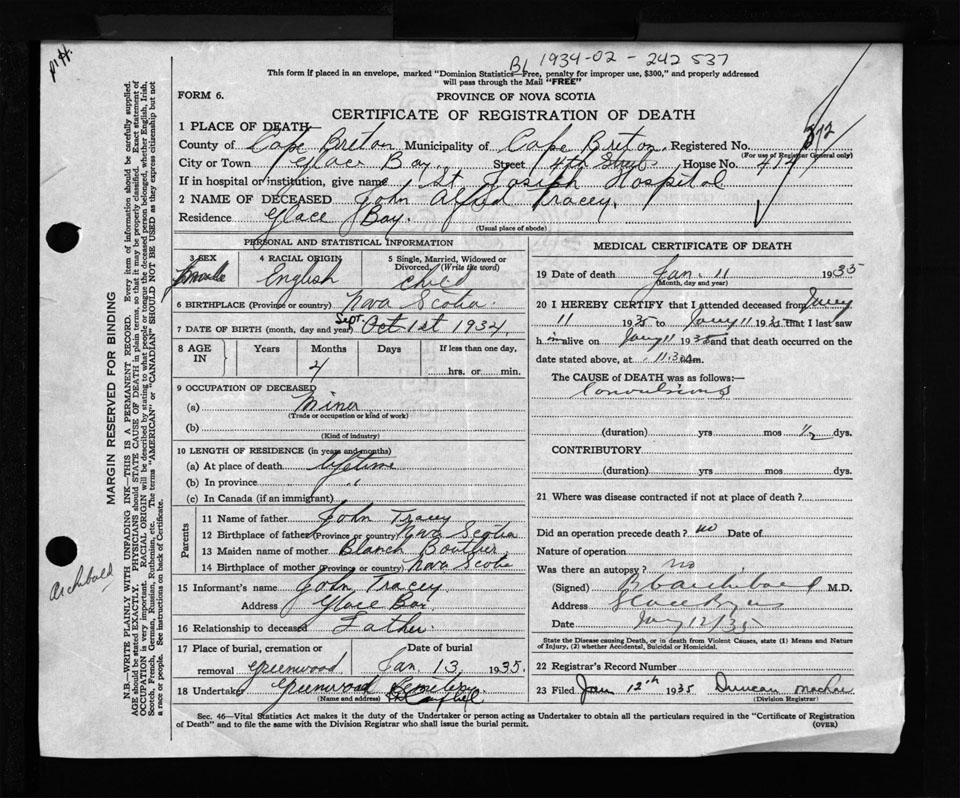 BL 1934-02-242537
This form if placed in an envelope, marked "Dominion Statistics—Free, penalty for improper use, $300," and properly addressed
will pass through the Mail "FREE"
FORM 6.
PROVINCE OF NOVA SCOTIA
CERTIFICATE OF REGISTRATION OF DEATH
1 PLACE OF DEATH
County of Cape Breton Municipality of Cape Breton Registered No. 372
(For use of Registrar General only)
City or Town Glace Bay Street 4th Street House No.
If in hospital or institution, give name St Joseph Hospital
2 NAME OF DECEASED John Alfred Tracey.
Residence Glace Bay.
(Usual place of abode)
PERSONAL AND STATISTICAL INFORMATION
3 SEX
4 RACIAL ORIGIN English
5 Single, Married, Widowed or Divorced. (Write the word) child
6 BIRTHPLACE (Province or country) Nova Scotia.
7 DATE OF BIRTH (month, day and year) Sept. Oct 1st 1934,
8 AGE IN Years Months Days If less than one day,
4 hrs. or min.
9 OCCUPATION OF DECEASED
(a) Minor
(Trade or occupation or kind of work)
(b)
(Kind of industry)
10 LENGTH OF RESIDENCE (in years and months)
(a) At place of death lifetime
(b) In province "
(c) In Canada (if an immigrant)
Parents
11 Name of father John Tracey
12 Birthplace of father (Province or country) Nova Scotia
13 Maiden name of mother Blanch Boutlier
14 Birthplace of mother (Province or country) Nova Scotia
15 Informant's name John Tracey
Address Glace Bay.
16 Relationship to deceased Father.
17 Place of burial, cremation or removal Greenwood
Date of burial Jan. 13, 1935.
18 Undertaker Greenwood
(Name and address)
MEDICAL CERTIFICATE OF DEATH
19 Date of death Jan. 11 1935
(Month, day and year)
20 I HEREBY CERTIFY that I attended deceased from Jany
11 1935 to Jany 11 1935 that I last saw
him alive on Jany 11 1935 and that death occurred on the
date stated above, at 11:30 m.
The CAUSE of DEATH was as follows:—
Convulsions
(duration) yrs mos ½ dys.
CONTRIBUTORY
(duration) yrs mos dys.
21 Where was disease contracted if not at place of death?
Did an operation precede death? no Date of
Nature of operation
Was there an autopsy? no
(Signed) Archibald M.D.
Address Glace Bay
Date Jany 12/35
State the Disease causing Death, or in death from Violent Causes, state (1) Means and Nature
of Injury, (2) whether Accidental, Suicidal or Homicidal.
22 Registrar's Record Number
23 Filed Jan 12th 1935 Duncan MacRae
(Division Registrar)
Sec. 46—Vital Statistics Act makes it the duty of the Undertaker or person acting as Undertaker to obtain all the particulars required in the "Certificate of Registration
of Death" and to file the same with the Division Registrar who shall issue the burial permit. (OVER)
MARGIN RESERVED FOR BINDING
N.B.—WRITE PLAINLY WITH UNFADING INK—THIS IS A PERMANENT RECORD. Every item of information should be carefully supplied.
AGE should be stated EXACTLY. PHYSICIANS should STATE CAUSE OF DEATH in plain terms, so that it may be properly classified. Exact statement of
OCCUPATION is very important. RACIAL ORIGIN will be described by stating to what people or tongue the deceased person belonged, whether English, Irish,
Scotch, French, German, Russian, Ruthenian, etc. The terms "AMERICAN" or "CANADIAN" SHOULD NOT BE USED as they express citizenship but not
a race or people. See instructions on back of Certificate.
Archibald